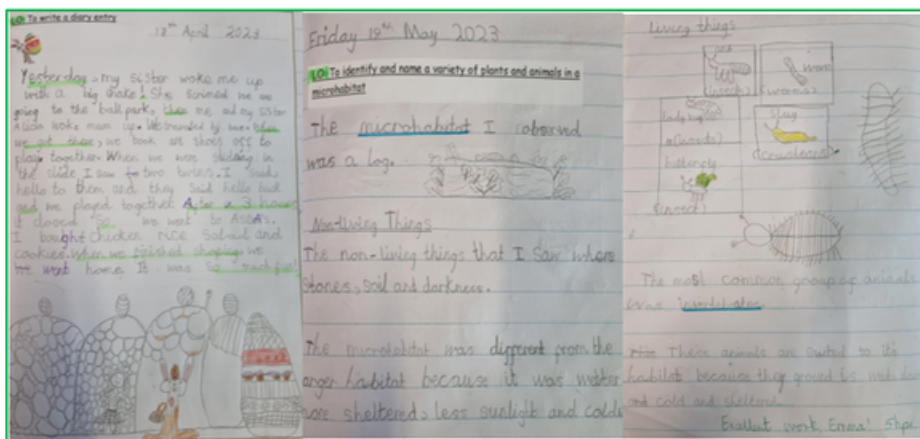 LO: To write a diary entry
18th April 2023
Yesterday my sister woke me up
with a big shake! She scrimed we are
going to the ball park, then me and my sister
woke mum up. We traveled by . When
we got there, we took are shoes off to
play together. When we were sliding in
the slide I saw to two twins. I said
hello to them and they said hello back
and we played together. After a 3 hours
it closed. So, we went to ASDA's.
I bought chicken rice and
cookies. When we finished shoping we
we went home. It was so much fun!
Friday 19th May 2023
LO: To identify and name a variety of plants and animals in a
microhabitat
The microhabitat I observed
was a log.
Non-living Things
The non-living things that I saw where
stones, soil and darkness.
The microhabitat was different from the
habitat because it was wetter
more sheltered, less sunlight and
Living things
worm
(insect)
(worms)
ladybug
slug
butterfly
(insect)
The most common group of animals
was invertebrates.
These animals are suited to it's
habitat because they
and cold and
Excellent work, Emma! 5hps